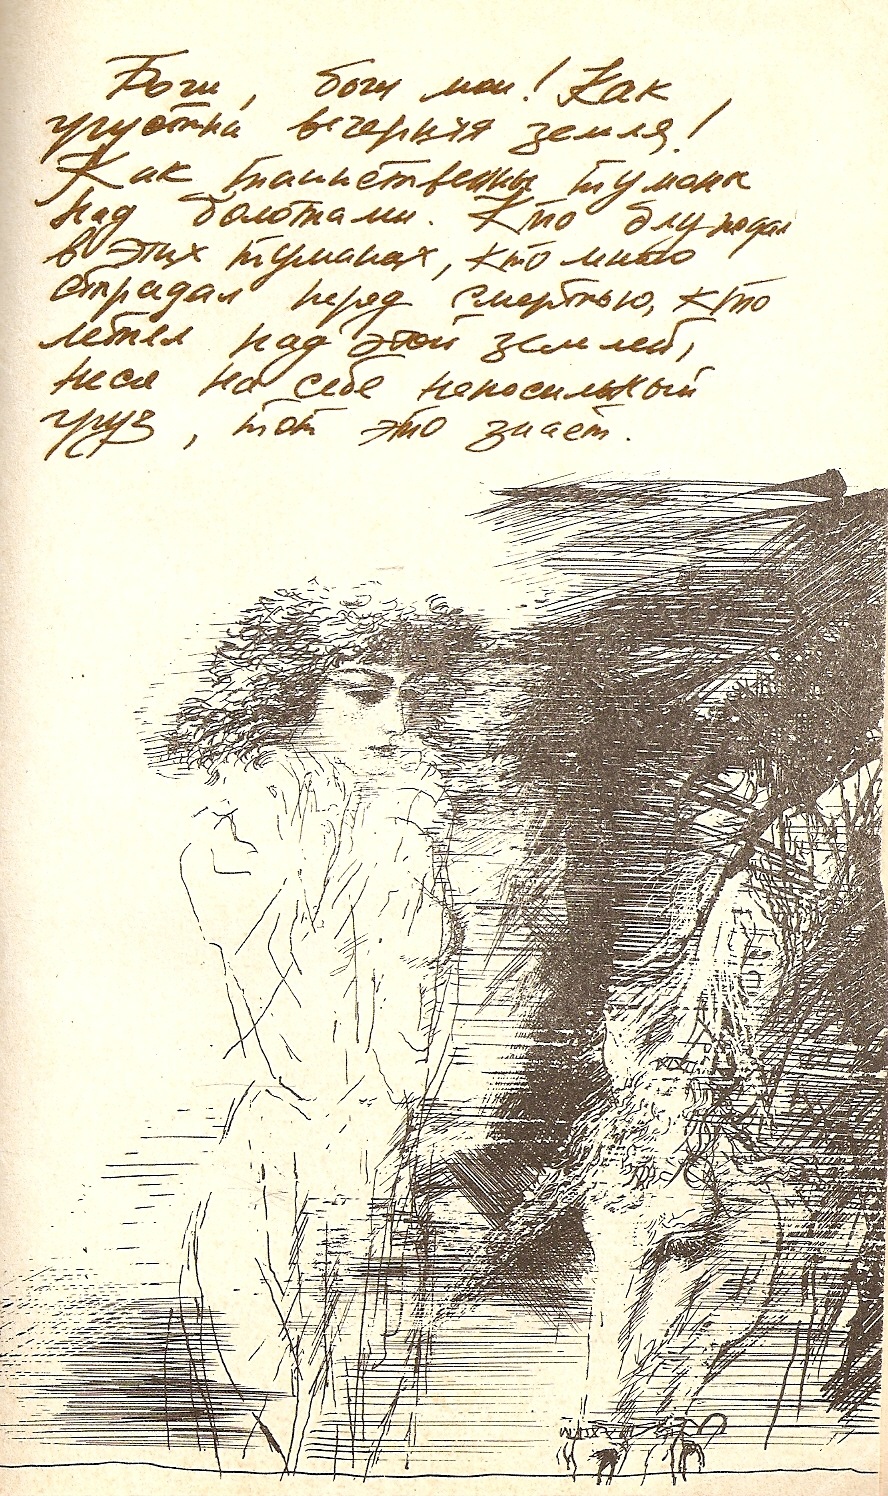 Боги, боги мои! Как
грустна вечерняя земля!
Как таинственны туманы
над болотами. Кто блуждал
в этих туманах, кто много
страдал перед смертью, кто
летел над этой землей,
неся на себе непосильный
груз, тот это знает.